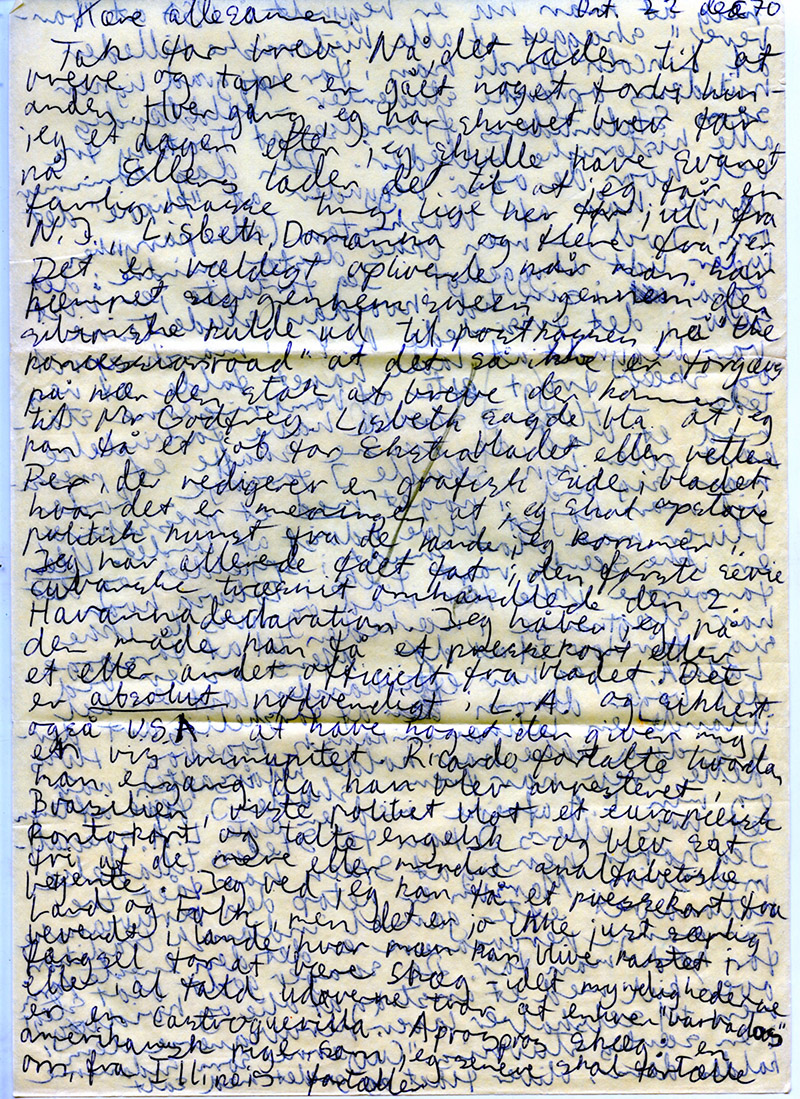 Kære allesamen Dat 22 dec 70
Tak for brev. Nå, det lader til at
breve og tape er gået noget forbi hin-
anden. Hver gang jeg har skrevet brev får
jeg et dagen efter, jeg skulle have svaret
på. Ellers lader det til at jeg får en
farlig masse ting lige her før jul, fra
N.J., Lisbeth, Doranna og flere fra jer
Det er vældigt oplivende når man har
kæmpet sig gennem sneen gennem den
sibiriske kulde ud til postkassen på "the
koncessionroad" at det så ikke er forgæves
på nær den stak af breve der kommer
til Mr Godfrey. Lisbeth sagde bla. at jeg
kan få et job for Ekstrabladet eller rettere
Rex, der redigerer en grafisk side i bladet,
hvor det er meningen, at jeg skal opstøve
politisk kunst fra de lande jeg kommer i.
Jeg har allerede fået fat i den første serie
cubanske træsnit omhandlede den 2.
Havannadeclaration. Jeg håber jeg på
den måde kan få et pressekort eller
et eller andet officielt fra bladet. Det
er absolut nødvendigt i L.A. og sikkert
også USA at have noget den giver mig
en vis immunitet. Ricardo fortalte hvordan
han engang da han blev arresteret i
Brasilien, viste politiet blot et europæisk
kontokort og talte engelsk - og blev sat
fri af de mere eller mindre analfabetiske
betjente. Jeg ved jeg kan få et pressekort fra
Land og Folk, men det er jo ikke just særlig
bevendt i lande, hvor man kan blive kastet i
fængsel for at bære skæg - idet myndighederne
eller i al fald udøverne tror at enhver "barbados"
er en Castroguerilla. Apropros skæg: en
amerikansk pige som jeg senere skal fortælle
om, fra Illinois fortæller